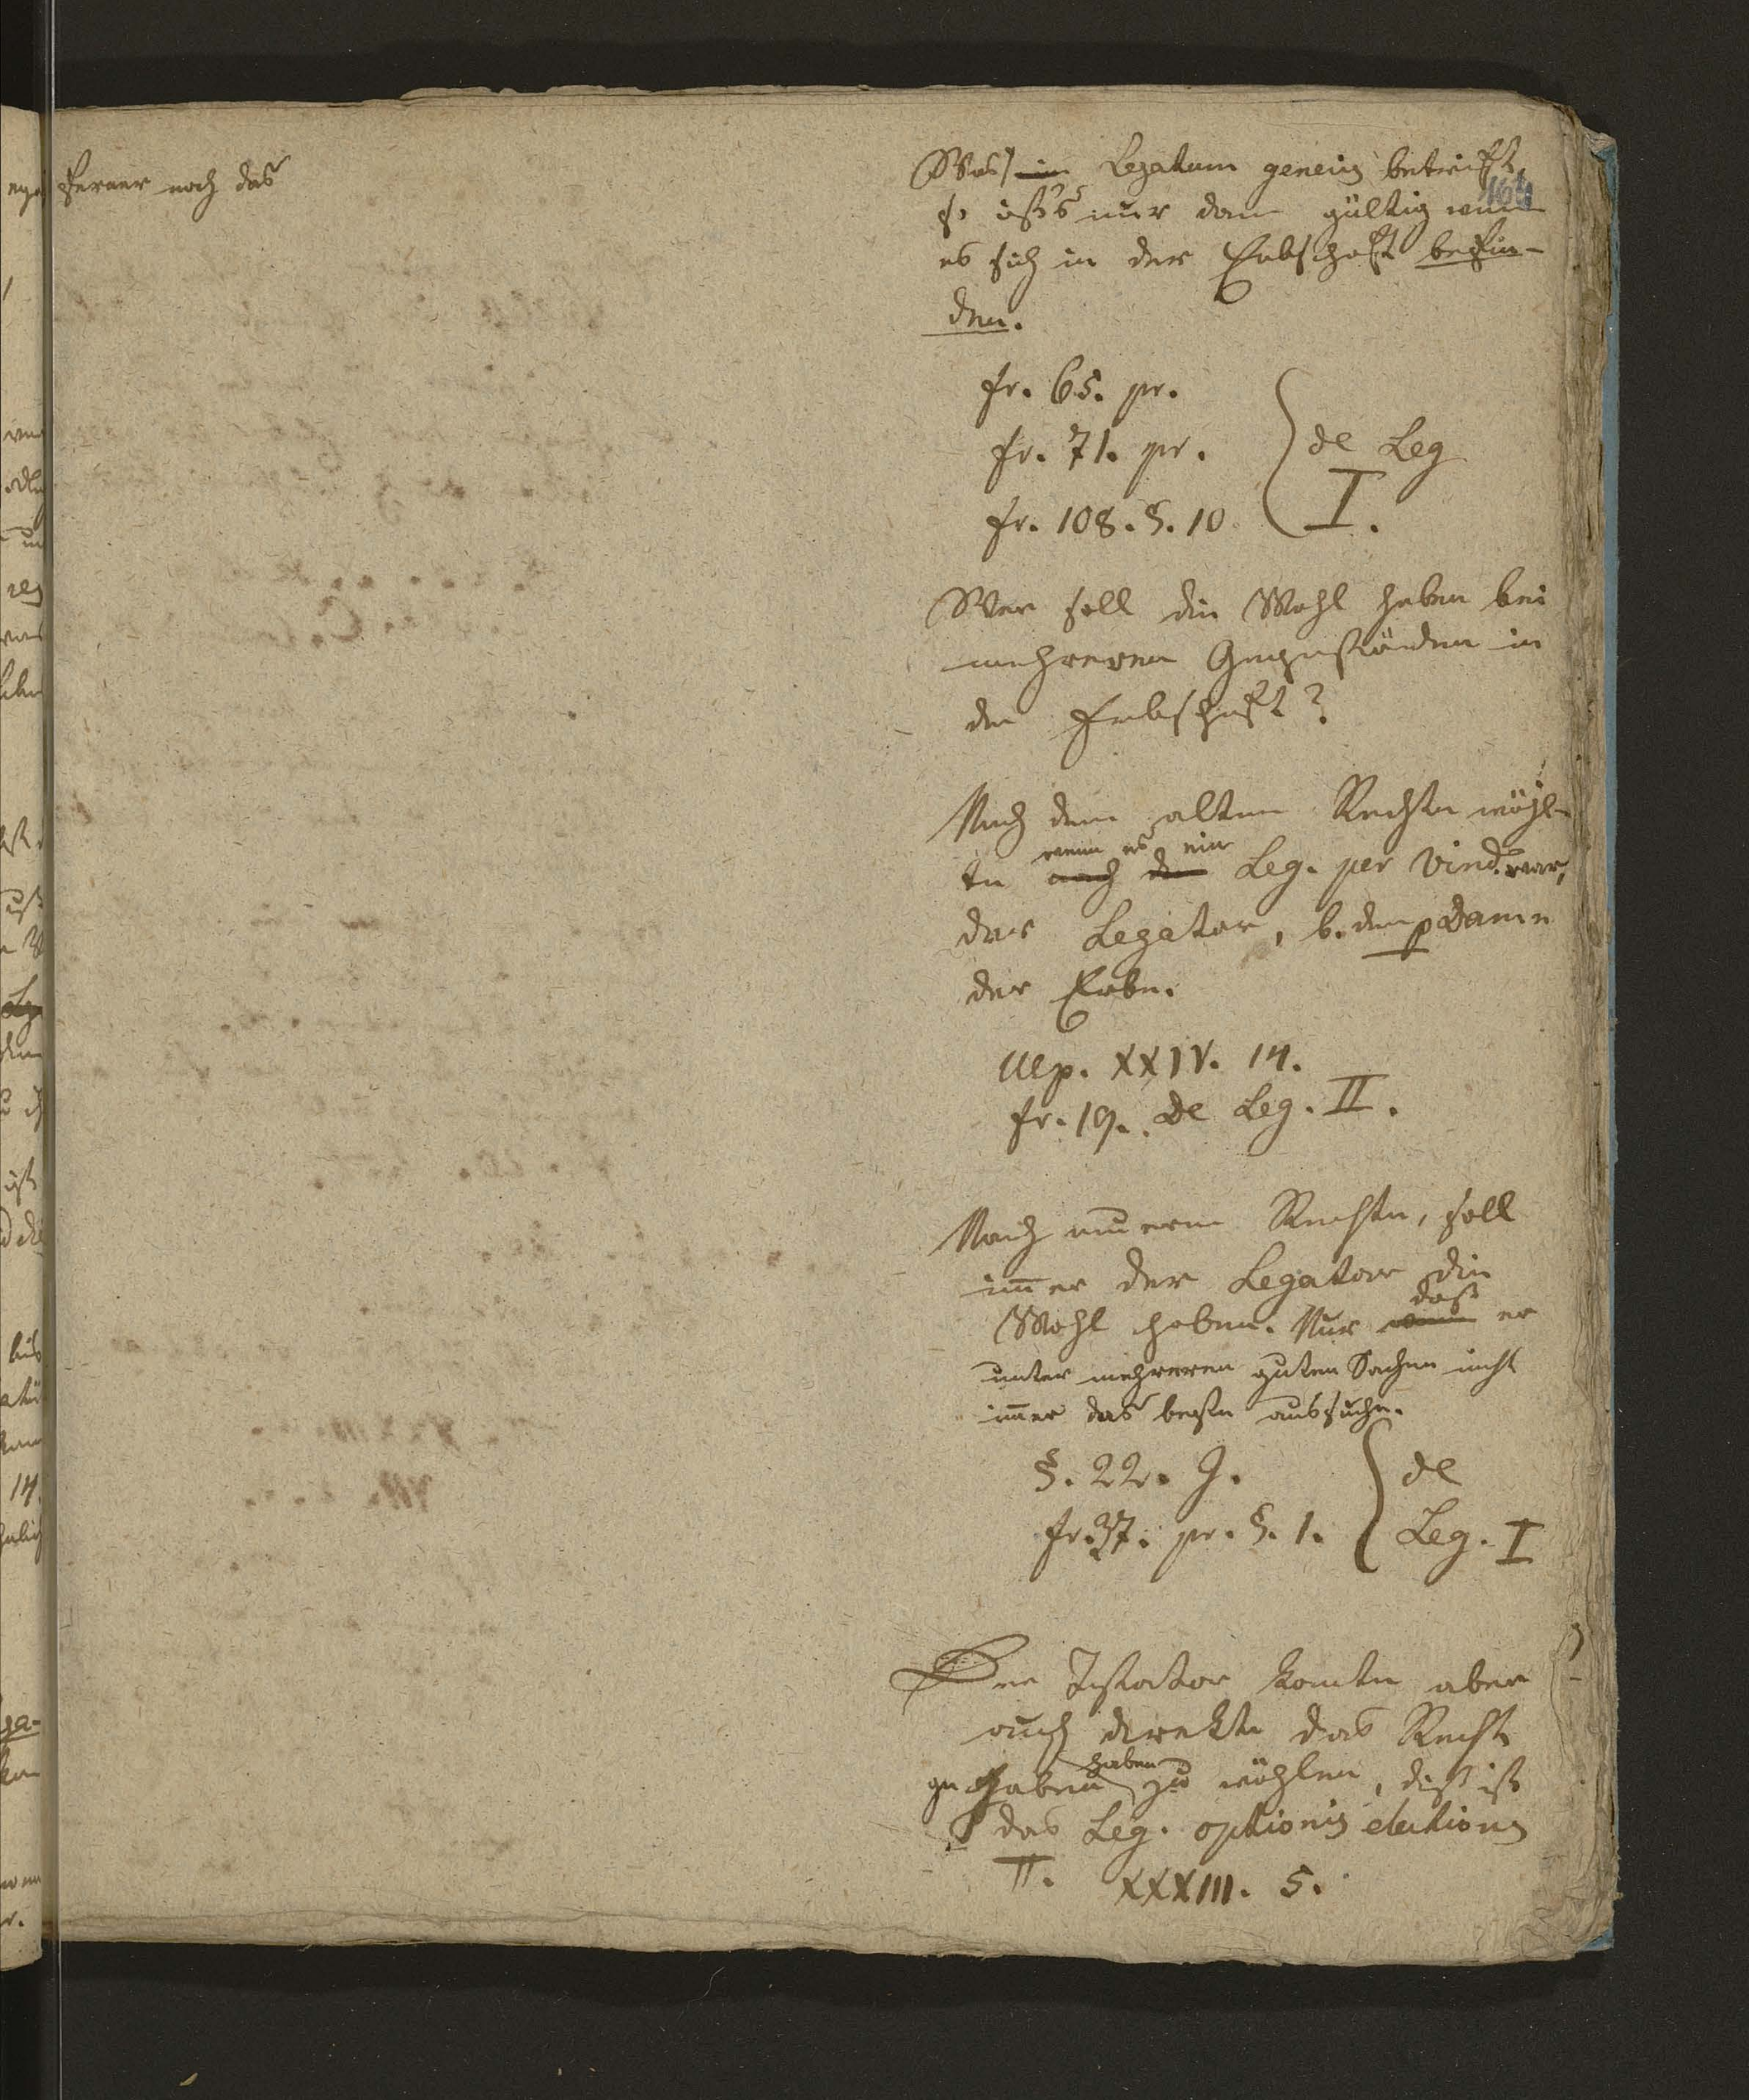 ferner noch das
Was ein Legatum generis betrifft,
164
so ists nur dann gültig wenn
es sich in der Erbschaft befin-
den.
fr. 65. pr.
fr. 71. pr. } de Leg
fr. 108. §. 10 I.
Wer soll die Wahl haben bei
mehreren Gegenständen in
der Erbschaft?
Nach dem alten Rechte wähl-
wenn es ein
te nach dem Leg. per vind. war,
der Legatar, b. dem p Damn
der Erbe.
Ulp. XXIV. 14.
fr. 19. De Leg. II.
Nach neuerm Rechte, soll
im̄er der Legatar die
daß
Wahl haben. Nur wenn er
unter mehreren guten Sachen nicht
im̄er das beste aussuche.
§. 22. J. } de
fr. 37. pr. §. 1. Leg. I
Der Testator konnte aber
auch direkte das Recht
haben
gegeben zu wählen, dieß ist
das Leg. optionis electionis
π. XXXIII. 5.